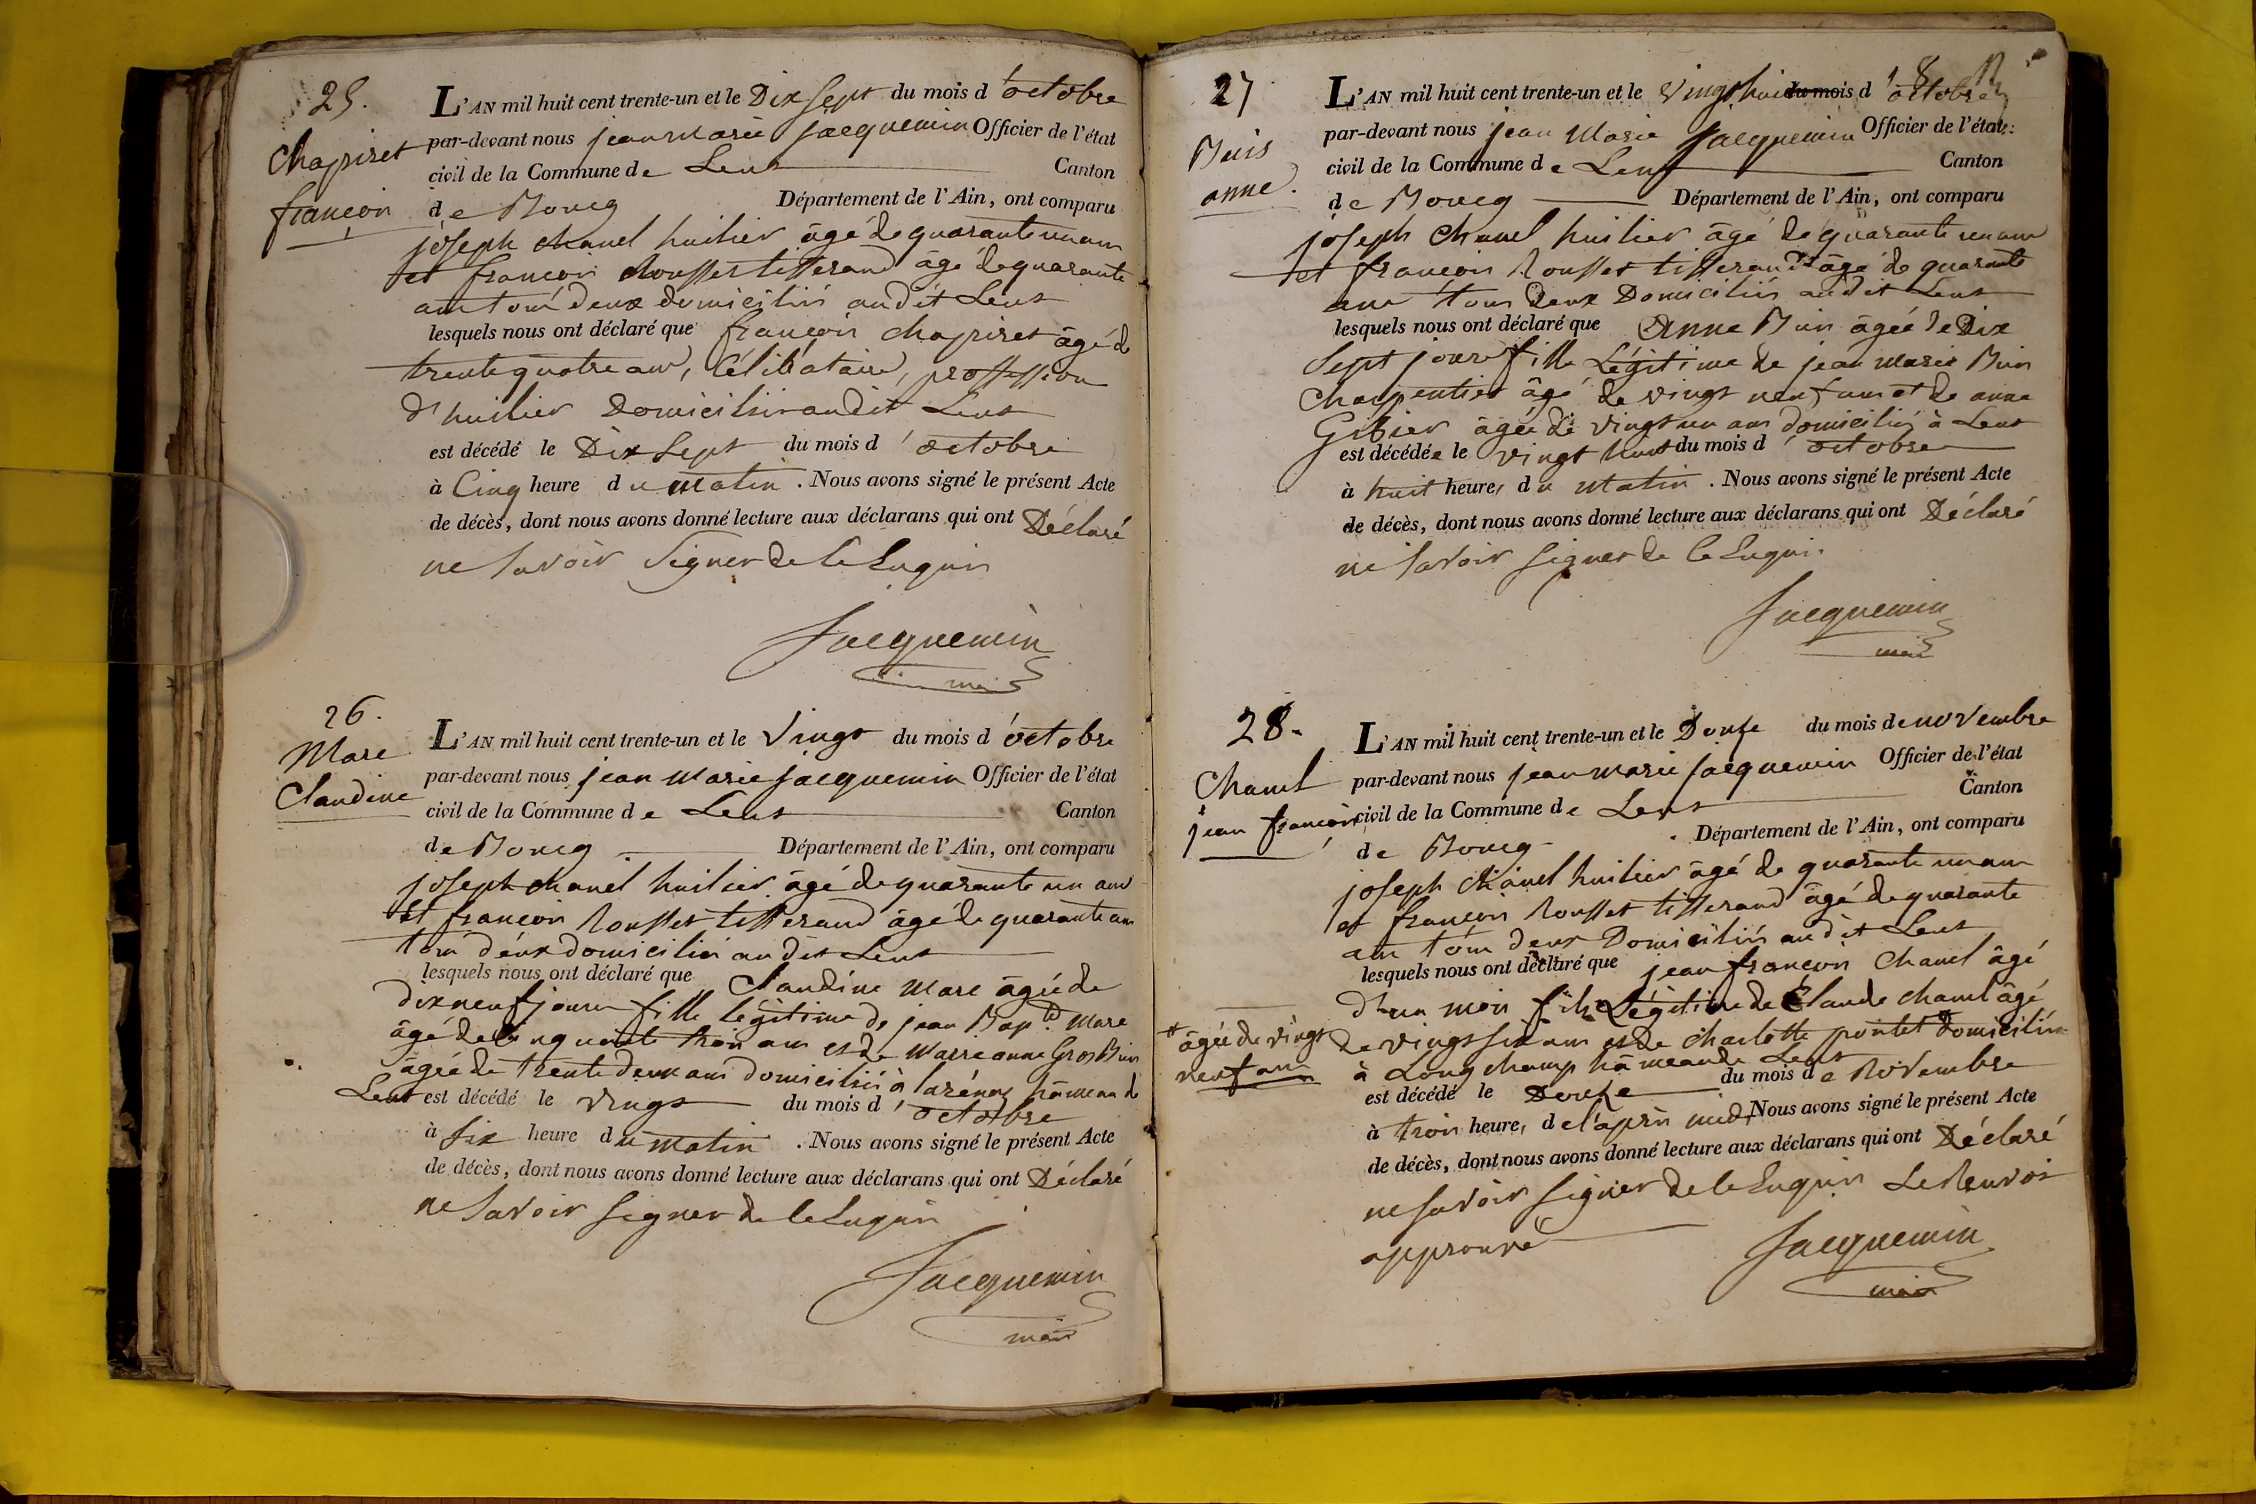 25.
Chapiret
françois
L'AN mil huit cent trente-un et le Dix Sept du mois d'octobre
par-devant nous jean Marie Jacquemin Officier de l'état
civil de la Commune de Lent Canton
de Bourg Département de l'Ain, ont comparu
joseph Chanel huilier âgé de quarante un ans
et françois Rousset tisserand âgé de quarante
ans tous deux domiciliés audit Lent
lesquels nous ont déclaré que françois Chapiret âgé de
trente quatre ans, Célibataire, proffession
d'huilier Domicilié audit Lent
est décédé le Dix Sept du mois d'octobre
à Cinq heure du Matin. Nous avons signé le présent Acte
de décès, dont nous avons donné lecture aux déclarans qui ont Déclaré
ne Savoir Signer de ce Enquis
Jacquemin
maire
26.
Mare
Claudine
L'AN mil huit cent trente-un et le Vingt du mois d'octobre
par-devant nous jean Marie Jacquemin Officier de l'état
civil de la Commune de Lent Canton
de Bourg Département de l'Ain, ont comparu
joseph Chanel huilier âgé de quarante un ans
et françois Rousset tisserand âgé de quarante ans
tous deux domiciliés audit Lent
lesquels nous ont déclaré que Claudine Mare âgée de
dix neuf jours fille légitime de jean Bapte. Mare
âgé de Cinquante trois ans et de Marie anne Gros Buis
âgée de trente deux ans domiciliés à hâmeau de
Lent est décédé le vingt du mois d'octobre
à Six heure du matin. Nous avons signé le présent Acte
de décès, dont nous avons donné lecture aux déclarans qui ont Déclaré
ne Savoir Signer de ce Enquis
Jacquemin
maire
27
Buis
anne.
L'AN mil huit cent trente-un et le Vingt huit du mois d'octobre
par-devant nous jean Marie Jacquemin Officier de l'état
civil de la Commune de Lent Canton
de Bourg Département de l'Ain, ont comparu
joseph Chanel huilier âgé de quarante un ans
et françois Rousset tisserand âgé de quarante
ans tous deux Domiciliés audit Lent
lesquels nous ont déclaré que Anne Buis âgée de Dix
Sept jours fille Légitime de jean Marie Buis
Charpentier âgé de vingt neuf ans et de anne
Gibier âgée de vingt un ans domiciliés à Lent
est décédée le vingt huit du mois d'octobre
à huit heures du Matin. Nous avons signé le présent Acte
de décès, dont nous avons donné lecture aux déclarans qui ont Déclaré
ne Savoir Signer de ce Enquis
Jacquemin
maire
28.
Chanel
jean françois
L'AN mil huit cent trente-un et le Douze du mois de novembre
par-devant nous jean marie Jacquemin Officier de l'état
civil de la Commune de Lent Canton
de Bourg Département de l'Ain, ont comparu
joseph Chanel huilier âgé de quarante un ans
et françois Rousset tisserand âgé de quarante
ans tous deux Domiciliés audit Lent
lesquels nous ont déclaré que jean françois Chanel âgé
d'un mois fils Légitime de Claude Chanel âgé
de vingt six ans et de Charlotte pontet domiciliés
âgée de vingt
neuf ans
à Longchamp hâmeau de Lent
est décédé le Douze du mois de Novembre
à trois heures de l'après midi Nous avons signé le présent Acte
de décès, dont nous avons donné lecture aux déclarans qui ont Déclaré
ne Savoir Signer de ce Enquis Le Renvoi
approuvé
Jacquemin
maire